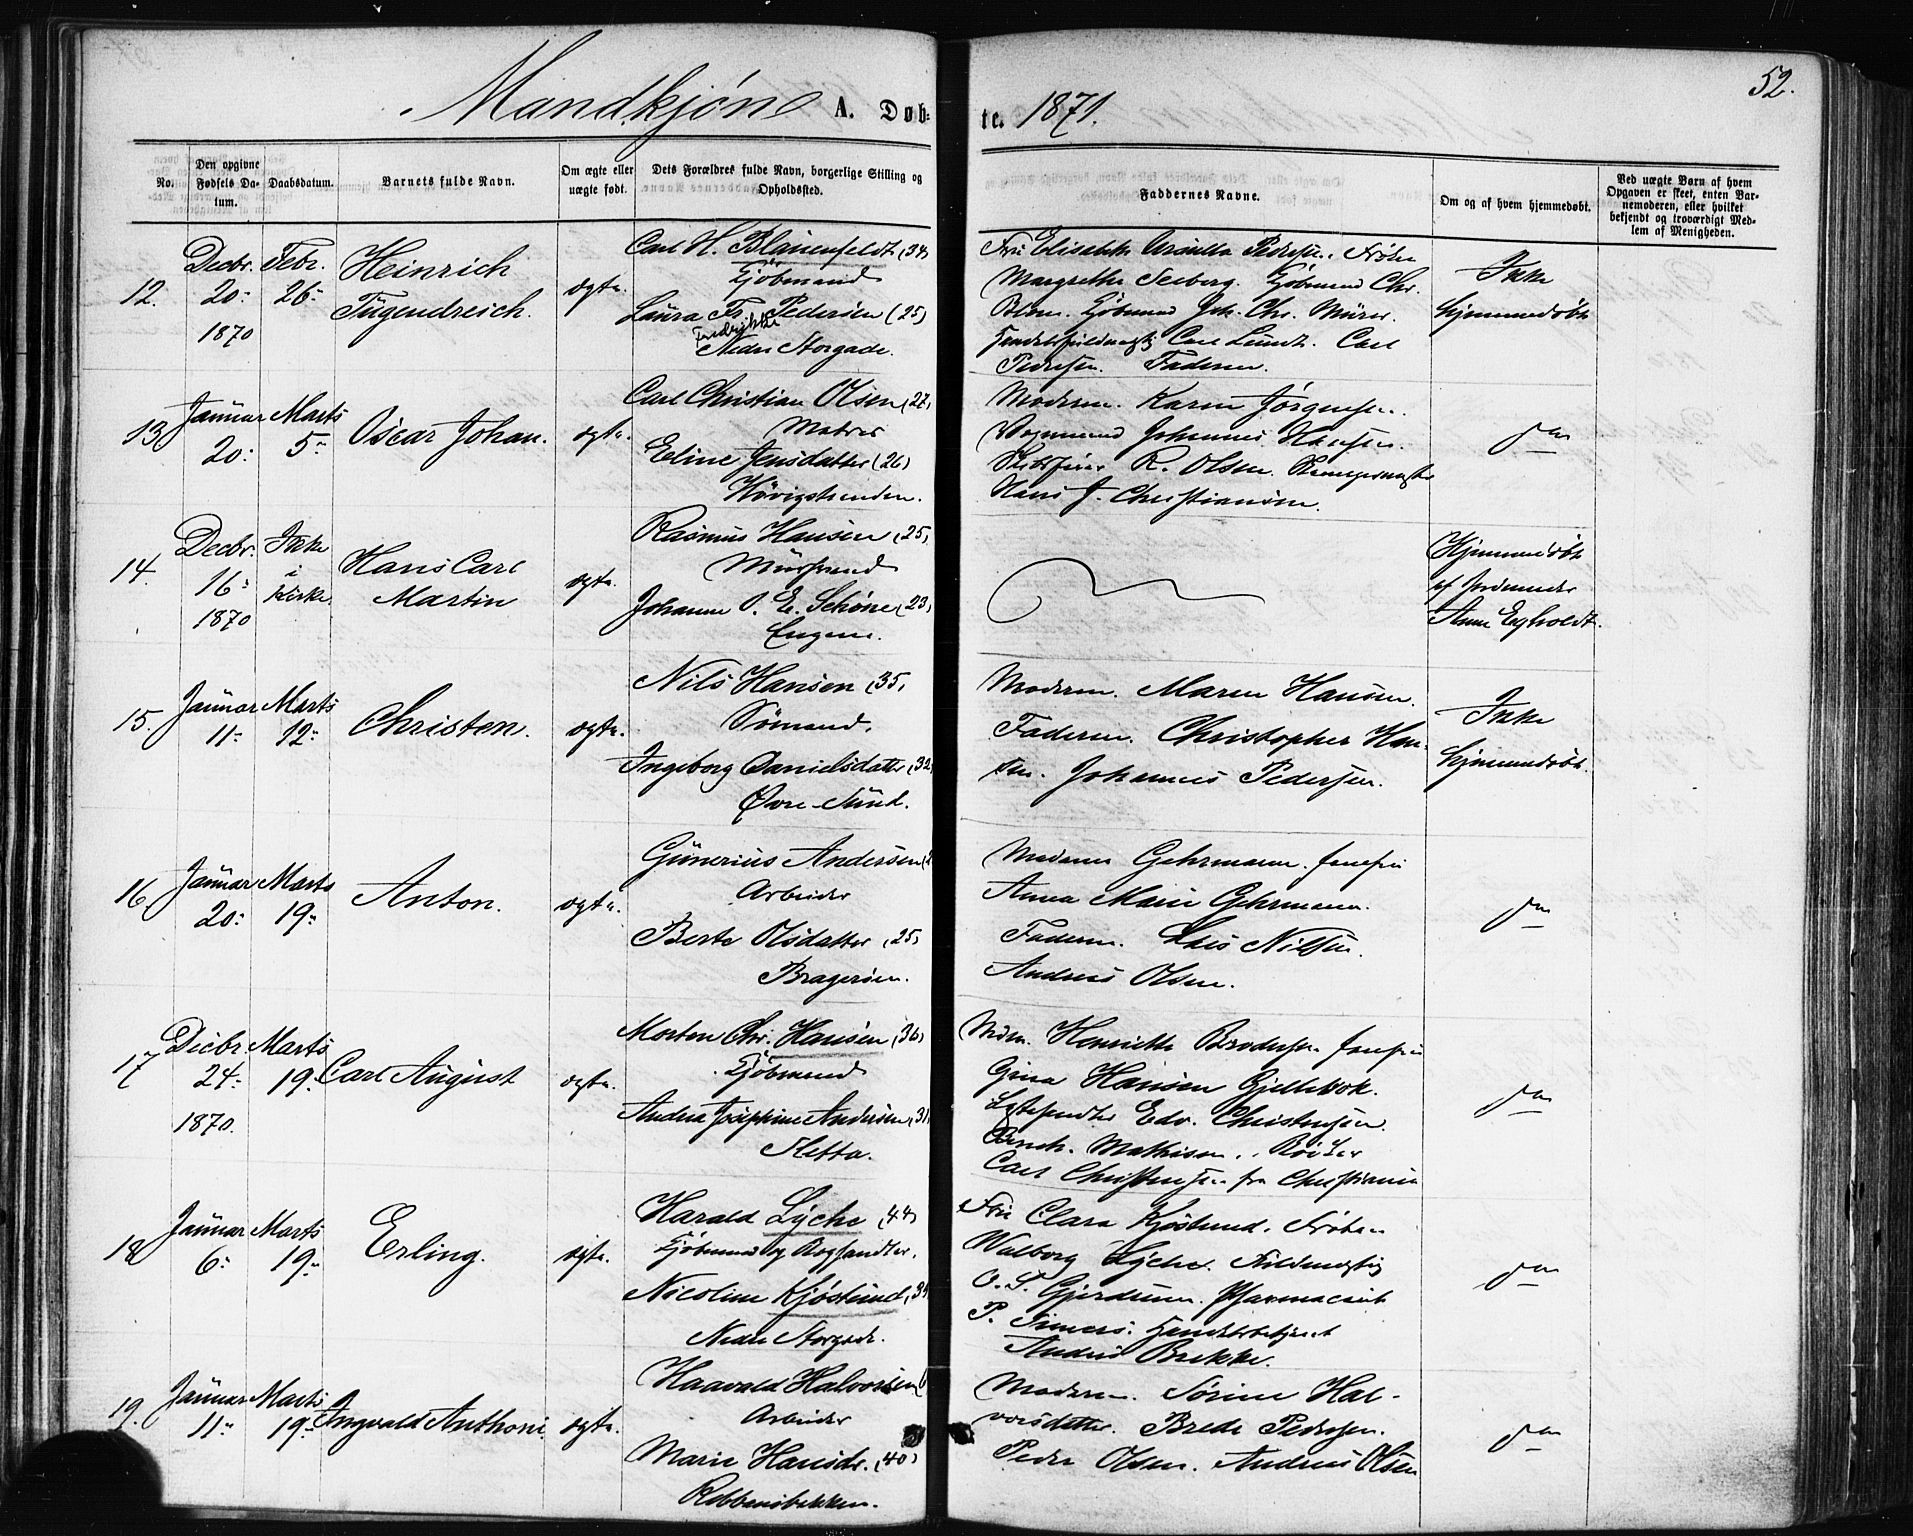 Mandkjøn A. Døb- te. 1871. 52.
No.
Den opgivne Fødsels Datum.
Daabsdatum.
Barnets fulde Navn.
Om ægte eller uægte født.
Dets Forældres fulde Navn, borgerlige Stilling og Opholdssted.
Faddernes Navne.
Om og af hvem hjemmedøbt.
Ved uægte Børn af hvem Opgaven er skeet, enten Barnemoderen, eller hvilket bekjendt og troværdigt Medlem af Menigheden.
12. Decbr. 20: 1870 Febr. 26:
Heinrich
Tugendreich.
ægte.
Carl H. Blauenfeldt (34)
Kjøbmand
Laura Fr. Pedersen (25)
Fredrikke
Nedre Storgade.
Fru Elisabeth Ursula Pedersen. Frøken
Margrethe Seeberg. Kjøbmand Chr.
Blom. Kjøbmand Joh. Chr. Mürer.
Handelsfuldmægtig Carl Lund. Carl
Pedersen. Faderen.
Ikke
hjemmedøbt
13 Januar 20: Marts 5:
Oscar Johan.
ægte.
Carl Christian Olsen (27)
Matros
Eline Jensdatter (26)
Høvigstranden.
Moderen. Karen Jørgensen.
Vognmand Johannes Hansen.
R. Olsen.
Hans J. Christiansen.
do
14. Decbr. 16: 1870 Ikke i Kirke.
Hans Carl
Martin
ægte.
Rasmus Hansen (25)
Murssvend
Johanne O. E. Schöne (23)
Engene.
Hjemmedøbt
af Jordmoder
Anne Egholdt.
15. Januar 11: Marts 12:
Christen.
ægte.
Nils Hansen (35)
Sømand.
Ingeborg Danielsdatter (32)
Øvre-Sund.
Moderen. Maren Hansen.
Faderen. Christopher Han-
sen. Johannes Pedersen.
Ikke
hjemmedøbt.
16 Januar 20: Marts 19:
Anton.
ægte.
Gunerius Andersen
Arbeider
Berte Olsdatter (25)
Bragerøen.
Madame Gehrmann. Jomfru
Anna Marie Gehrmann.
Faderen. Lars Nilsen.
Andreas Olsen.
do
17 Decbr. 24: 1870. Marts 19:
Carl August
ægte.
Morten Chr. Hansen (36)
Kjøbmand
Andrea Josephine Andersen (31)
Kletta.
Mdm. Henriette Brodersen. Jomfru
Gina Hansen Gjellebæk.
Edv. Christensen.
Mathisen.
Carl Christensen fra Christiania
do
18 Januar 6: Marts 19:
Erling.
ægte.
Harald Lyche (44)
Kjøbmand og Boghandler.
Nicoline Kjøsterud (34)
Nedre Storgade.
Fru Clara Kjøsterud. Frøken
Walborg Lyche. Fuldmægtig
O. S. Gjerdrum. Pharmaceut
P. Simers. Handelsbetjent
Andreas Brekke.
do
19. Januar 11: Marts 19:
Ingvald Anthoni
ægte.
Haavald Halvorsen
Arbeider
Marie Hansdr. (40)
Kobbensbakken.
Moderen. Sørine Hal-
vorsdatter. Brede Pedersen.
Peder Olsen. Andreas Olsen
do